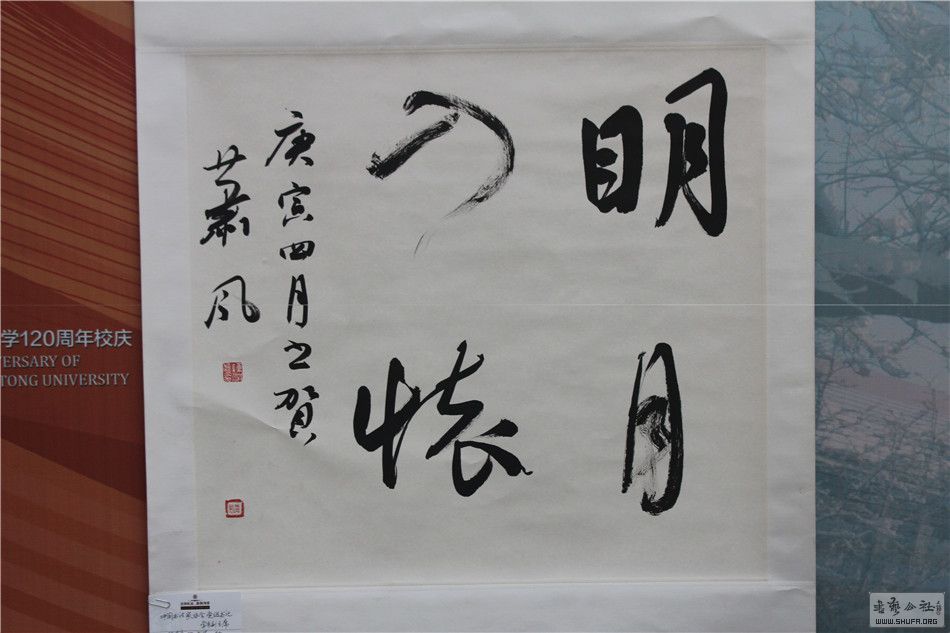 明月
入怀
庚寅四月书贺
萧风
学120周年校庆
ERSARY OF
TONG UNIVERSITY
书艺公社
WWW.SHUFA.ORG